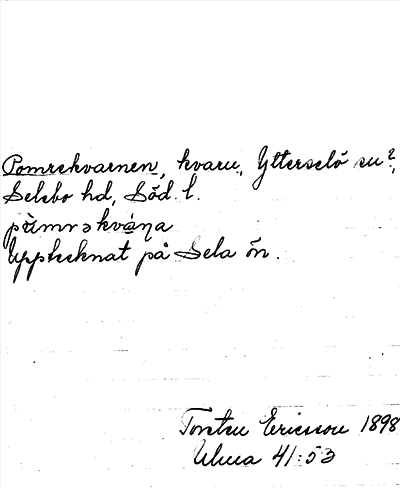 Pomrekvarnen, kvarn, Ytterselö sn?,
Selebo hd, Söd. l.
pὼmrə kvána
Upptecknat på Sela ön.
Torsten Ericsson 1898
Ulua 41:53